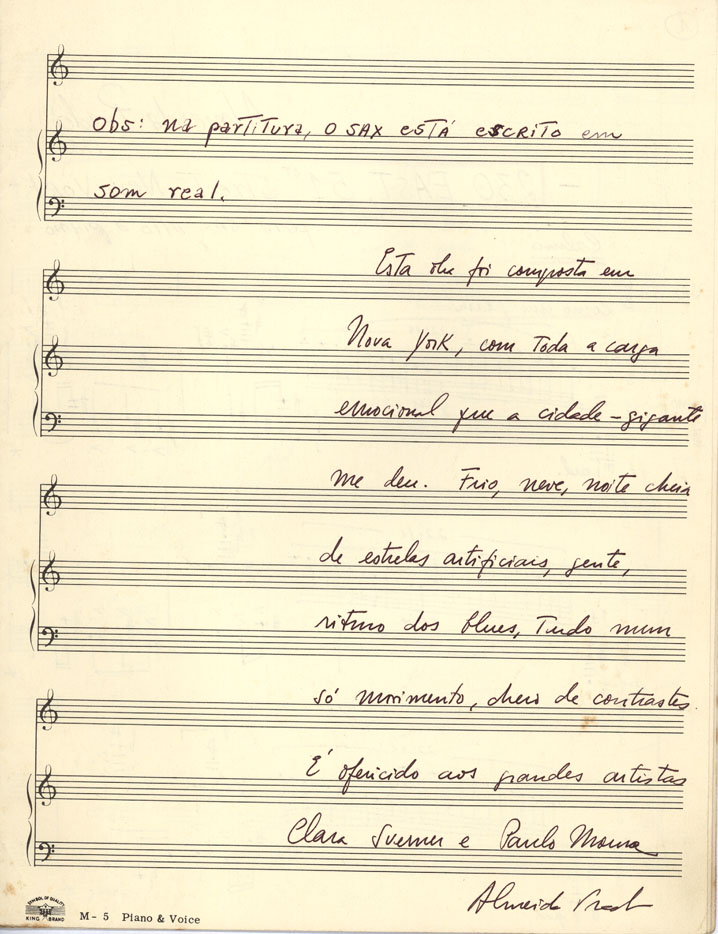 Obs: na partitura, o sax está escrito em
som real.
Esta obra foi composta em
Nova York, com toda a carga
emocional que a cidade-gigante
me deu. Frio, neve, noite cheia
de estrelas artificiais, gente,
ritmo dos blues, Tudo num
só movimento, cheio de contrastes.
É oferecido aos grandes artistas
Clara Sverner e Paulo Moura
Almeida Prado
SYMBOL OF QUALITY
KING BRAND
M-5 Piano & Voice